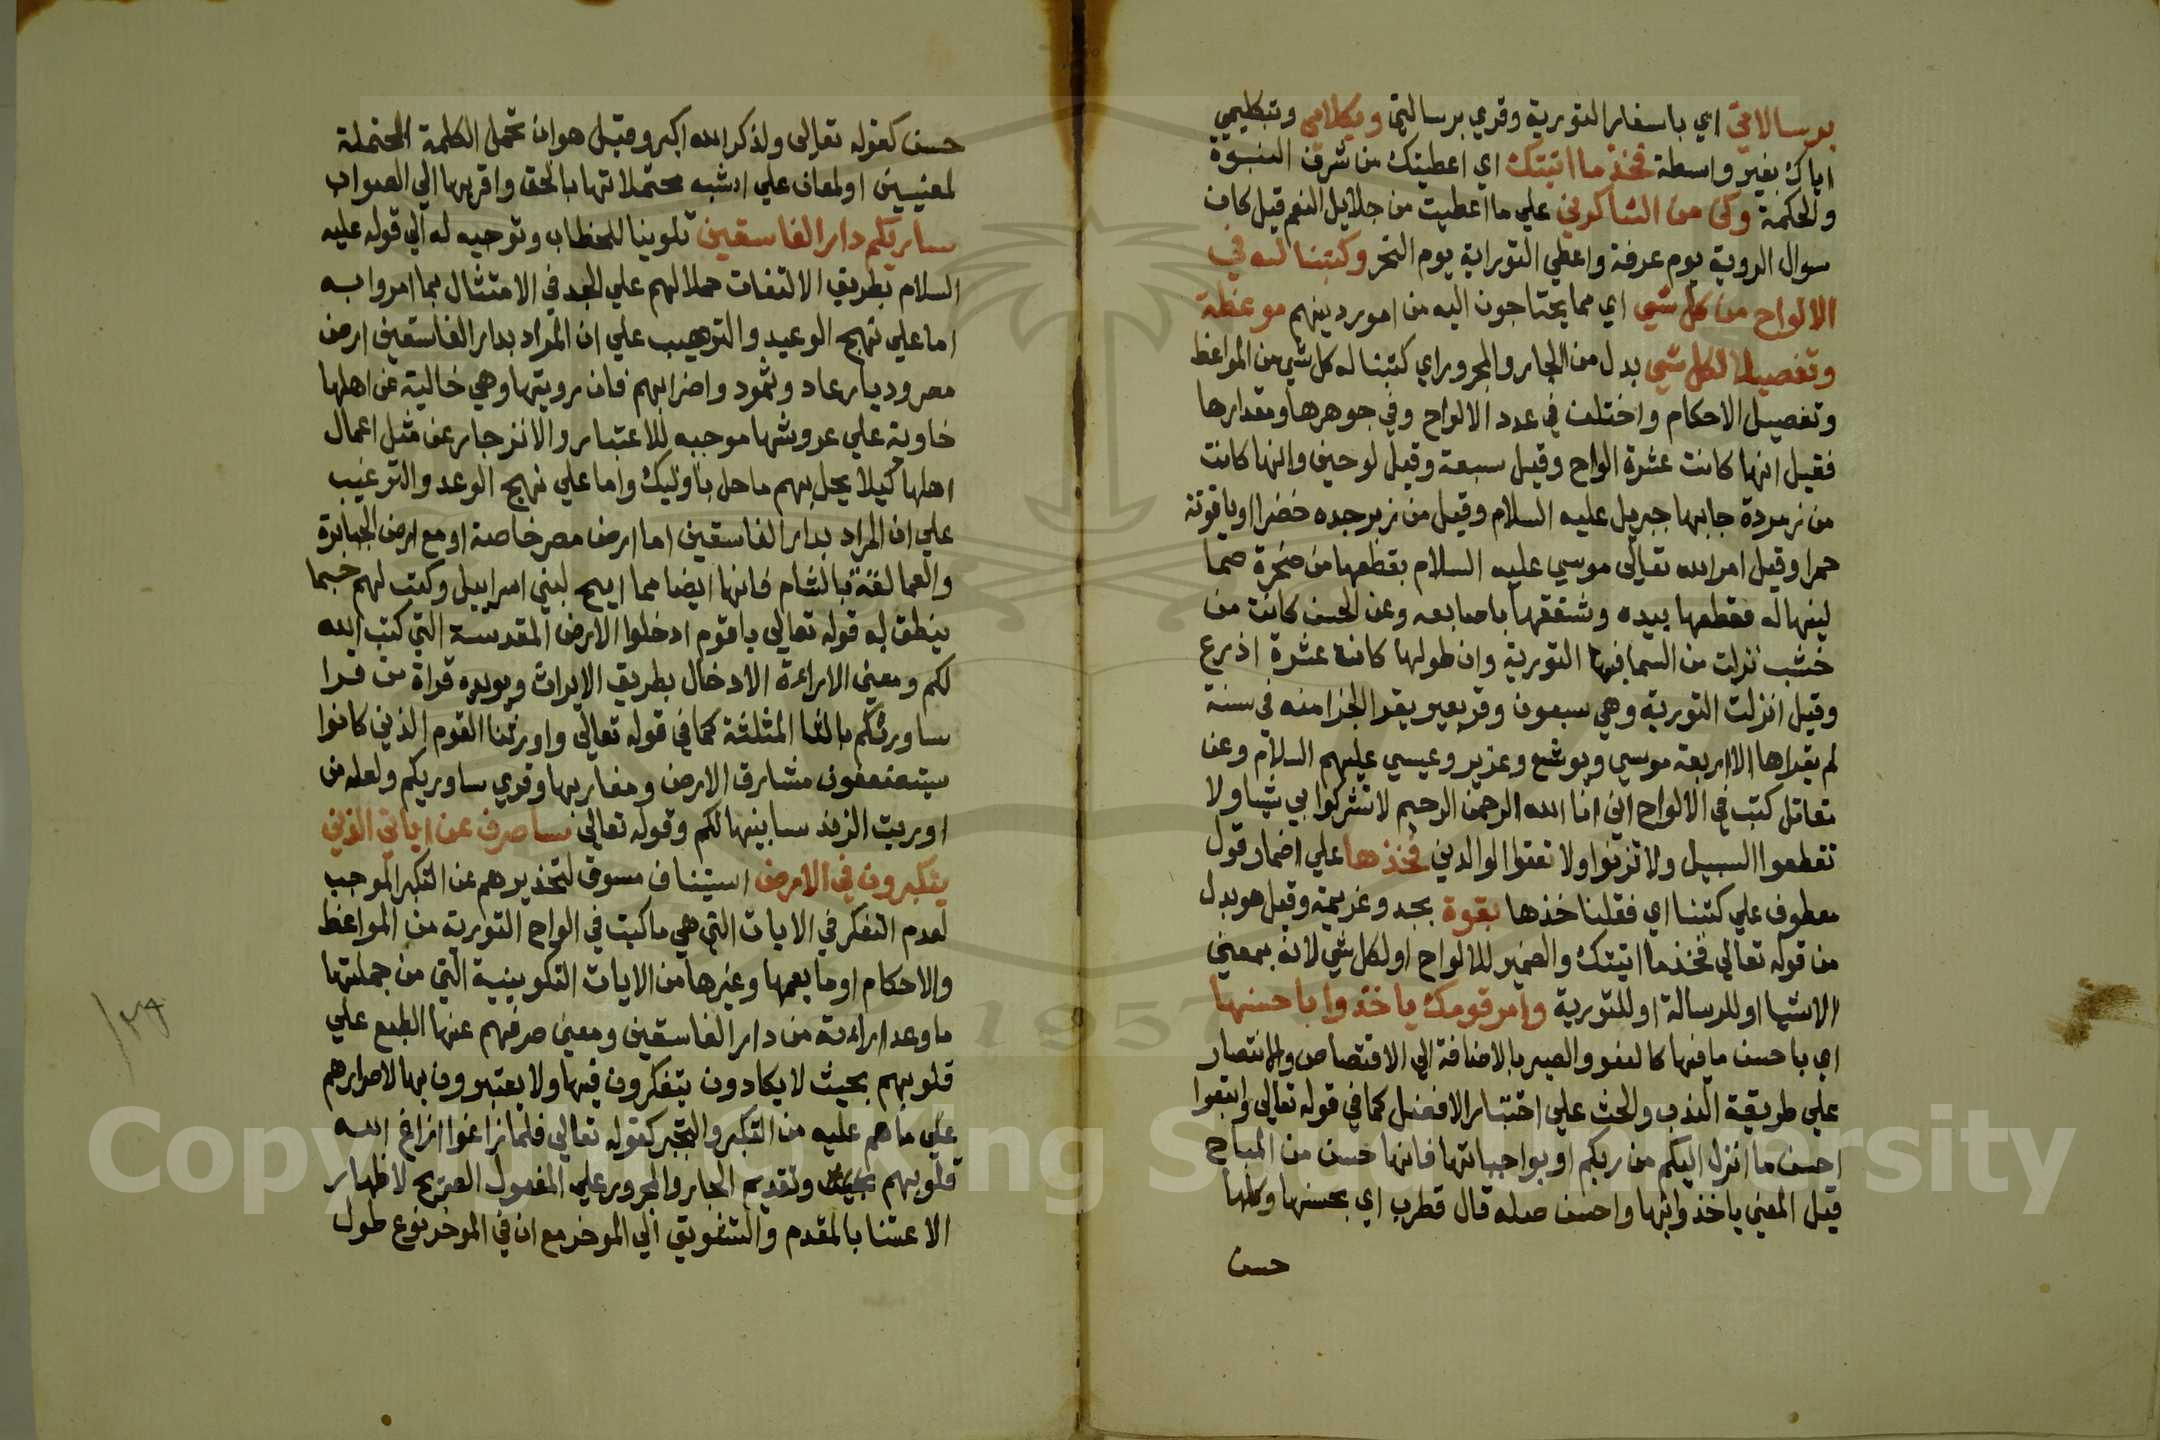 برسالاتي اي باسفار التورية وقري برسالتي وبكلامي وبتكليمي
اياك بغير واسطة فخذ ما اتيتك اي اعطيتك من شرف النبوة
والحكمة وكن من الشاكرين علي ما اعطيت من جلايل النعم قيل كان
سوال الروية يوم عرفة واعطي التوراية يوم النحر وكتبنا له في
الالواح من كل شي اي مما يحتاجون اليه من امور دينهم موعظة
وتفصيلا لكل شي بدل من الجار والمجرور اي كتبنا له كل شي من المواعظ
وتفصيل الاحكام واختلف في عدد الالواح وفي جوهرها ومقدارها
فقيل انها كانت عشرة الواح وقيل سبعة وقيل لوحين وانها كانت
من زمردة جابها جبريل عليه السلام وقيل من زبرجده خضرا او ياقوتة
حمرا وقيل امر الله تعالى موسي عليه السلام بقطعها من صخرة صما
لينها له فقطعها بيده وشققها باصابعه وعن الحسن كانت من
خشب نزلت من السما فيها التورية وان طولها كانه عشرة اذرع
وقيل انزلت التورية وهي سبعون وقر بعير يقرا الجزا منه في سنة
لم يقراها الا اربعة موسي ويوشع وعزير وعيسي عليهم السلام وعن
مقاتل كتب في الالواح اني انا الله الرحمن الرحيم لا تشركوا بي شيا ولا
تقطعوا السبيل ولا تزنوا ولا تعقوا الوالدين فخذها علي اضمار قول
معطوف علي كتبنا اي فقلنا خذها بقوة بجد وعزيمة وقيل هو بدل
من قوله تعالي فخذ ما اتيتك والضمير للالواح او لكل شي لانه بمعني
الاشيا او للرسالة او للتورية وامر قومك ياخذوا باحسنها
اي باحسن ما فيها كالعفو والصبر بالاضافة الي الاقتصاص والانتصار
علي طريقة الندب والحث علي اختيار الافضل كما في قوله تعالي واتبعوا
احسن ما انزل اليكم من ربكم او بواجباتها فانها حسن من المباح
قيل المعني ياخذوا بها واحسن صله قال قطرب اي بحسنها وكلها
حسن
حسن كقوله تعالى ولذكر الله اكبر وقيل هو ان تحمل الكلمة المحتملة
لمعنيين او لمعان علي اشبه محتملاتها بالحق واقربها الي الصواب
ساريكم دار الفاسقين تلوينا للخطاب وتوجيه له الي قوله عليه
السلام بطريق الالتفات حملا لهم علي الجد في الامتثال بما امروا به
اما علي نهج الوعيد والترهيب علي ان المراد بدار الفاسقين ارض
مصر وديار عاد وثمود واضرابهم فان رويتها وهي خالية عن اهلها
خاوية علي عروشها موجبه للاعتبار والانزجار عن مثل اعمال
اهلها كيلا يحل بهم ما حل باوليك واما علي نهج الوعد والترغيب
علي ان المراد بدار الفاسقين اما ارض مصر خاصة او مع ارض الجبابرة
والعمالقة بالشام فانها ايضا مما ابيح لبني اسرابيل وكتب لهم حسبما
ينطق به قوله تعالي يا قوم ادخلوا الارض المقدسة التي كتب الله
لكم ومعني الاراءة الادخال بطريق الايراث ويويده قراة من قرا
ساورثكم بالثا المثلثة كما في قوله تعالى واورثنا القوم الذين كانوا
يستضعفون مشارق الارض ومغاربها وقري ساوريكم ولعله من
اوريت الزند سابينها لكم وقوله تعالى ساصرف عن اياتي الذين
يتكبرون في الارض استيناف مسوق لتحذيرهم عن التكبر الموجب
لعدم التفكر في الايات التي هي ما كتبت في الواح التورية من المواعظ
والاحكام او ما يعمها وغيرها من الايات التكوينية التي من جملتها
ما وعد اراءته من دار الفاسقين ومعني صرفهم عنها الطبع علي
قلوبهم بحيث لا يكادون يتفكرون فيها ولا يعتبرون بها لاصرارهم
علي ما هم عليه من التكبر والتجبر كقوله تعالي فلما زاغوا ازاغ الله
قلوبهم وتقديم الجار والمجرور علي المفعول الصريح لاظهار
الاعتنا بالمقدم والتشويق الي الموخر مع ان في الموخر نوع طول
١٣٩
1957
Copyright © King Saud University